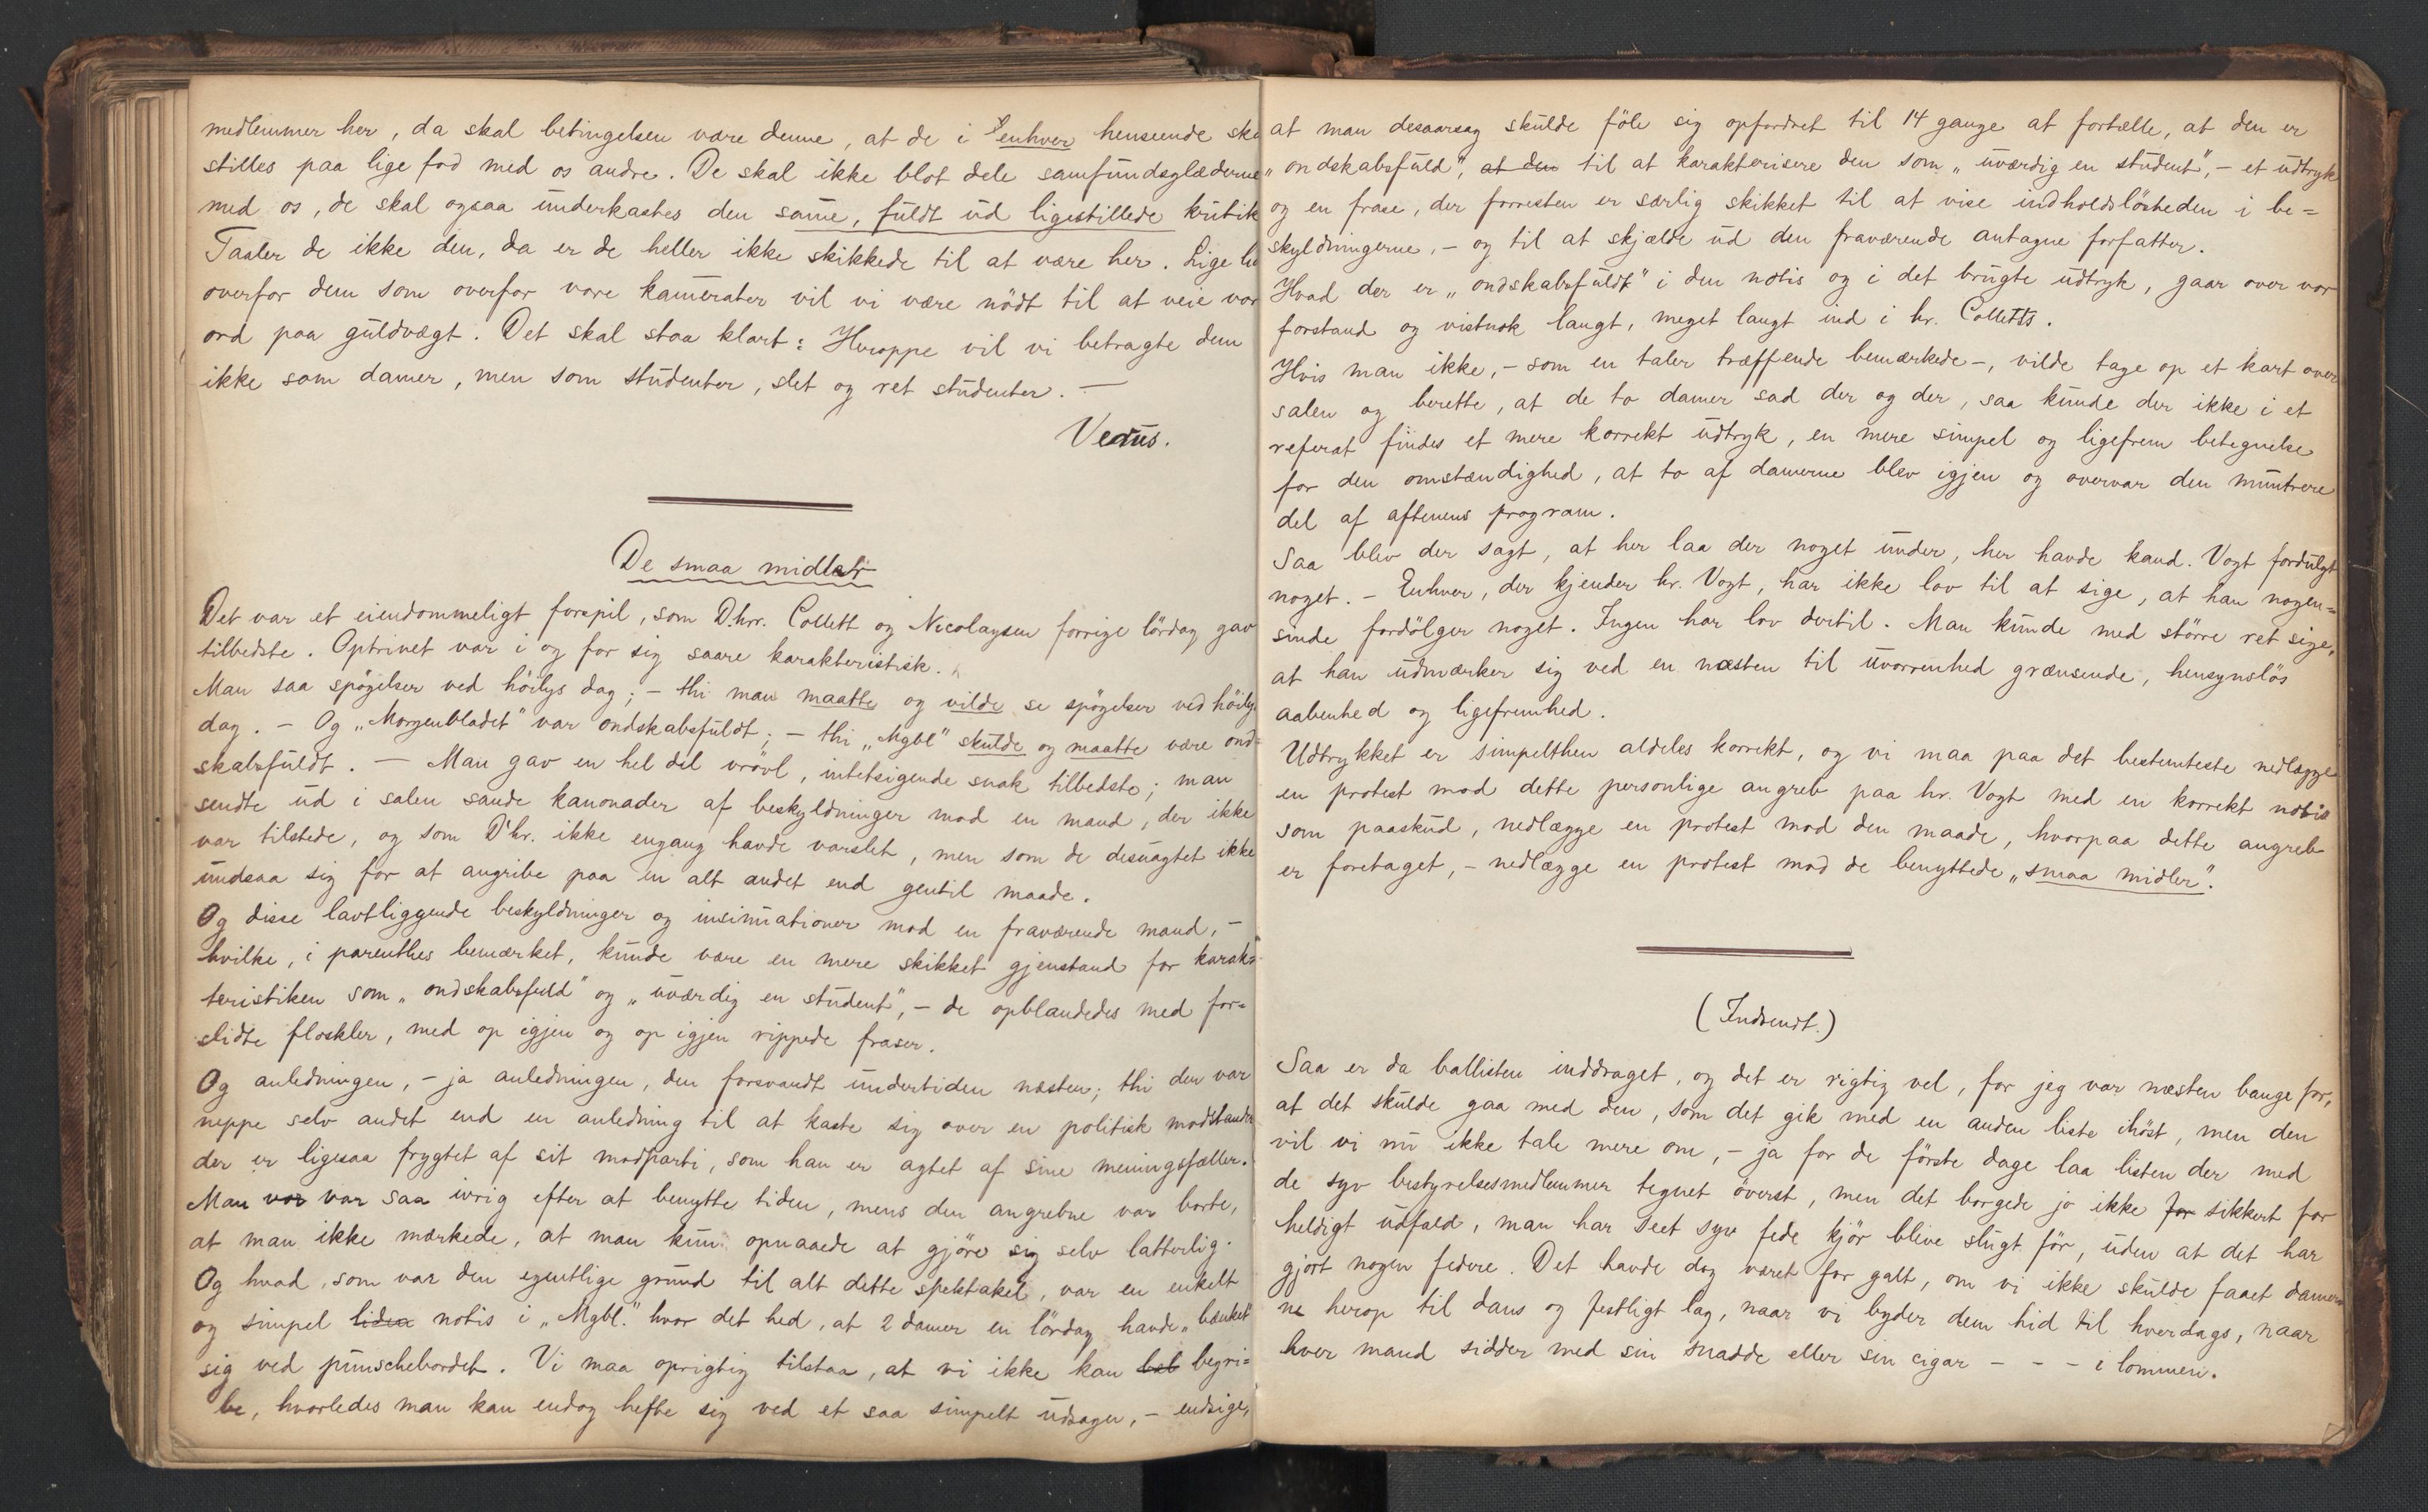 medlemmer her, da skal betingelsen være denne, at de i enhver henseende ska
stilles paa lige fod med os andre. De skal ikke blot dele samfundsglæderne
med os, de skal ogsaa underkastes den same, fuldt ud ligestillede kritik
Taaler de ikke den, da er de heller ikke skikkede til at være her. Lige li
overfor dem som overfor vore kamerater vil vi være nödt til at veie vor
ord paa guldvægt. Det skal staa klart: Heroppe vil vi betragte dem
ikke som damer, men som studenter, slet og ret studenter. —
Verus.
De smaa midler
Det var et eiendommeligt forspil, som D.hrr. Collett og Nicolaysen forrige lördag gav
tilbedste. Optrinet var i og for sig saare karakteristisk.
Man saa spögelser ved höilys dag; – thi man maatte og vilde se spögelser ved höilys
dag. – Og „Morgenbladet" var ondskabsfuldt; – thi „Mgbl" skulde og maatte være ond-
skabsfuldt. — Man gav en hel del vrövl, intetsigende snak tilbedste; man
sendte ud i salen sande kanonader af beskyldninger mod en mand, der ikke
var tilstede, og som D'hr. ikke engang havde varslet, men som de desuagtet ikke
undsaa sig for at angribe paa en alt andet end gentil maade.
Og disse lavtliggende beskyldninger og insinuationer mod en fraværende mand, –
hvilke, i parenthes bemærket, kunde være en mere skikket gjenstand for karak-
teristiken som „ondskabsfuld" og „uværdig en student", – de opblandedes med for-
slidte floskler, med op igjen og op igjen rippede fraser.
Og anledningen, – ja anledningen, den forsvandt undertiden næsten; thi den var
neppe selv andet end en anledning til at kaste sig over en politisk modstander
der er ligesaa frygtet af sit modparti, som han er agtet af sine meningsfæller.
Man var var saa ivrig efter at benytte tiden, mens den angrebne var borte,
at man ikke mærkede, at man kun opnaaede at gjöre sig selv latterlig.
Og hvad, som var den egentlige grund til alt dette spektakel, var en enkelt
og simpel liden notis i „Mgbl." hvor det hed, at 2 damer en lördag havde „bænket"
sig ved punschebordet. Vi maa oprigtig tilstaa, at vi ikke kan beb begri-
be, hvorledes man kan endog hefte sig ved et saa simpelt udsagn, – endsige,
at man desaarsag skulde föle sig opfordret til 14 gange at fortælle, at den er
„ondskabsfuld", at den til at karakterisere den som „uværdig en student", – et udtryk
og en frase, der forresten er særlig skikket til at vise indholdslösheden i be-
skyldningerne, – og til at skjælde ud den fraværende antagne forfatter.
Hvad der er „ondskabsfuldt" i den notis og i det brugte udtryk, gaar over vor
forstand og vistnok langt, meget langt ind i hr. Colletts.
Hvis man ikke, – som en taler træffende bemærkede –, vilde tage op et kart over
salen og berette, at de to damer sad der og der, saa kunde der ikke i et
referat findes et mere korrekt udtryk, en mere simpel og ligefrem betegnelse
for den omstændighed, at to af damerne blev igjen og overvar den muntrere
del af aftenens program.
Saa blev der sagt, at her laa der noget under, her havde kand. Vogt fordulgt
noget. – Enhver, der kjender hr. Vogt, har ikke lov til at sige, at han nogen-
sinde fordölger noget. Ingen har lov dertil. Man kunde med större ret sige,
at han udmærker sig ved en næsten til uvorrenhed grænsende, hensynslös
aabenhed og ligefremhed.
Udtrykket er simpelthen aldeles korrekt, og vi maa paa det bestemteste nedlægge
en protest mod dette personlige angreb paa hr. Vogt med en korrekt notis
som paaskud, nedlægge en protest mod den maade, hvorpaa dette angreb
er foretaget, – nedlægge en protest mod de benyttede „smaa midler".
(Indsendt.)
Saa er da ballisten inddraget, og det er rigtig vel, for jeg var næsten bange for,
at det skulde gaa med den, som det gik med en anden liste ihöst, men den
vil vi nu ikke tale mere om, – ja for de förste dage laa listen der med
de syv bestyrelsesmedlemmer tegnet överst, men det borgede jo ikke for sikkert for
heldigt udfald, man har seet syv fede kjör blive slugt för, uden at det har
gjort nogen federe. Det havde dog været for galt, om vi ikke skulde faaet damer
ne herop til dans og festligt lag, naar vi byder dem hid til hverdags, naar
hver mand sidder med sin snadde eller sin cigar – – – i lommen.